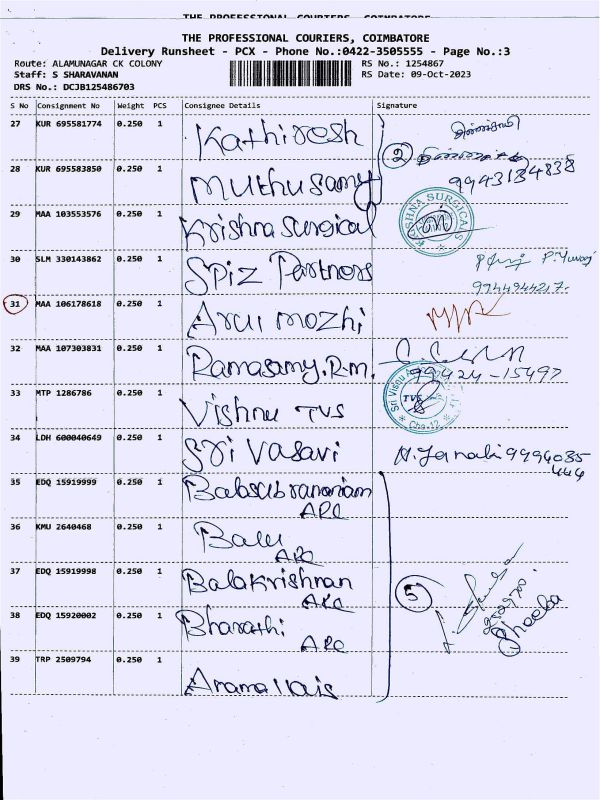 THE PROFESSIONAL COURIERS, COIMBATORE
THE PROFESSIONAL COURIERS, COIMBATORE
Delivery Runsheet - PCX - Phone No.:0422-3505555 - Page No.:3
Route: ALAMUNAGAR CK COLONY RS No.: 1254867
Staff: S SHARAVANAN RS Date: 09-Oct-2023
DRS No.: DCJB125486703
S No Consignment No Weight PCS Consignee Details Signature
27 KUR 695581774 0.250 1 Kathiresh
28 KUR 695583850 0.250 1 Muthusamy 2 9943134838
29 MAA 103553576 0.250 1 Krishna Surgical KRISHNA SURGICALS
30 SLM 330143862 0.250 1 Spiz Partners P. Yuvraj
9944944217
31 MAA 106178618 0.250 1 Arul mozhi
32 MAA 107303831 0.250 1 Ramasamy.R.M. 99424-15497
33 MTP 1286786 0.250 1 Vishnu TVS TVS Cbe-12
34 LDH 600040649 0.250 1 Sri Vasavi 9994085
444
35 EDQ 15919999 0.250 1 Babsubramaniam
APC
36 KMU 2640468 0.250 1 Balu
APC
37 EDQ 15919998 0.250 1 Balakrishnan 5
APC
38 EDQ 15920002 0.250 1 Bharathi Sheeba
APC
39 TRP 2509794 0.250 1